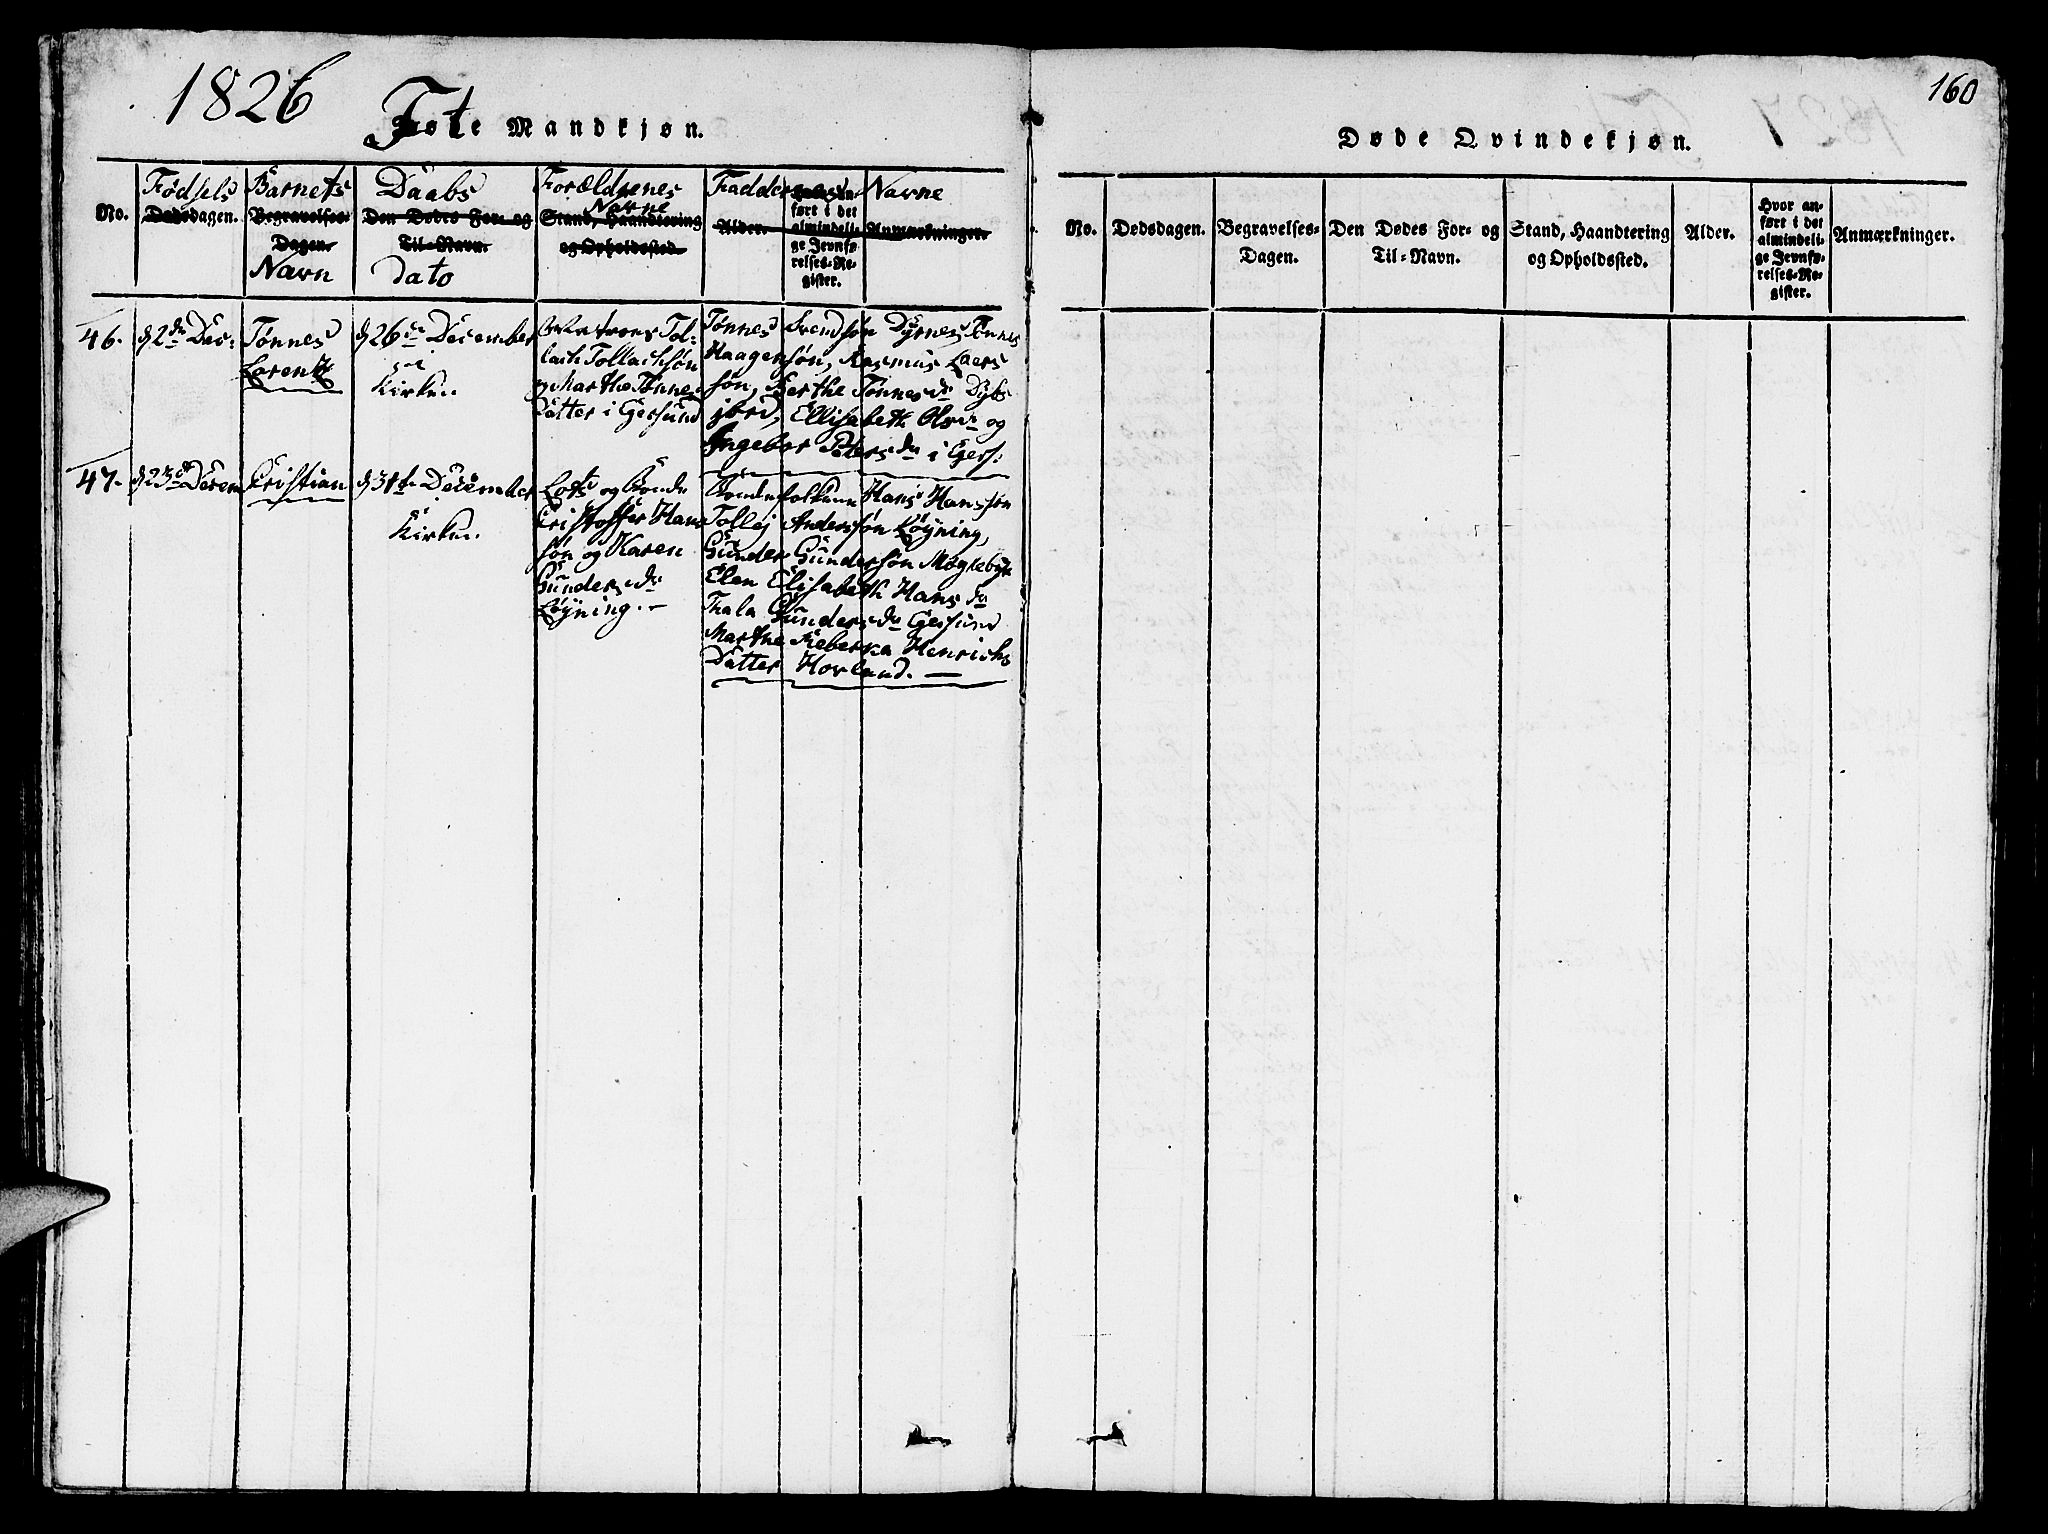 1826
Føte Mandkjøn.
No.
Fødsels
Dødsdagen.
Barnets
Begravelses-
Dagen.
Navn
Daabs
Den Dødes For- og
Til-Navn.
Dato
Forældrenes
Navne
Stand, Haandtering
og Opholdssted.
Faddernes Navne
Alder.
ført i det
almindeli-
ge Jevnfø-
relses-Re-
gister.
Anmærkninger.
46.
d 2den Dec:
Tønnes
Lorentz
d 26de December
i
Kirken
Tol-
lach Tollachsøn
og Marthe Tønnes
Datter i Gersund
Tønnes Svendsøn Dyrnes, Tønnes
Haagensøn, Rasmus Laers
søn, Berthe Tønnesdr Dybs
jord, Ellisabeth Olsdr og
Ingebor Petersdr i Gers:
47.
d 23de Decem
Cristian
d 31te December
Kirken
Lots og Bonde
Cristoffer Hans
søn og Karen
Gundersdr
Løyning.
Bondefolkene Hans Hanssøn
Tollej Anderssøn Løyning,
Gunder Gundersøn Møglebye
Elen Elisabeth Hansdr
Thala Gundersdr Gersund
Marthe Rebekka Henrichs
Datter Hovland.
160
Døde Qvindekjøn.
No.
Dødsdagen.
Begravelses-
Dagen.
Den Dødes For- og
Til-Navn.
Stand, Haandtering
og Opholdssted.
Alder.
Hvor an-
ført i det
almindeli-
ge Jevnfø-
relses-Re-
gister.
Anmærkninger.